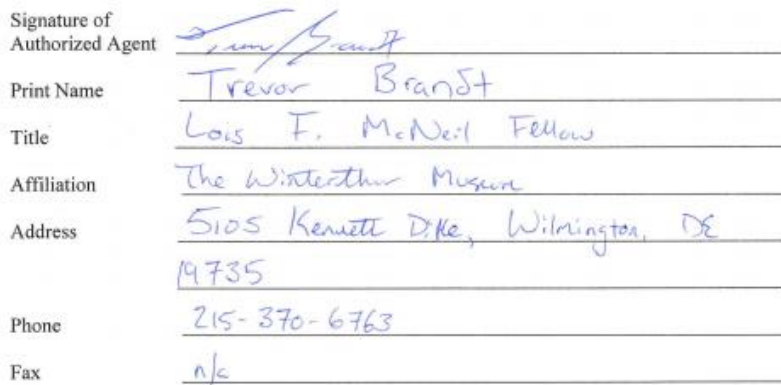 Signature of
Authorized Agent Trevor Brandt
Print Name Trevor Brandt
Title Lois F. McNeil Fellow
Affiliation The Winterthur Museum
Address 5105 Kennett Pike, Wilmington, DE
19735
Phone 215-370-6763
Fax n/a